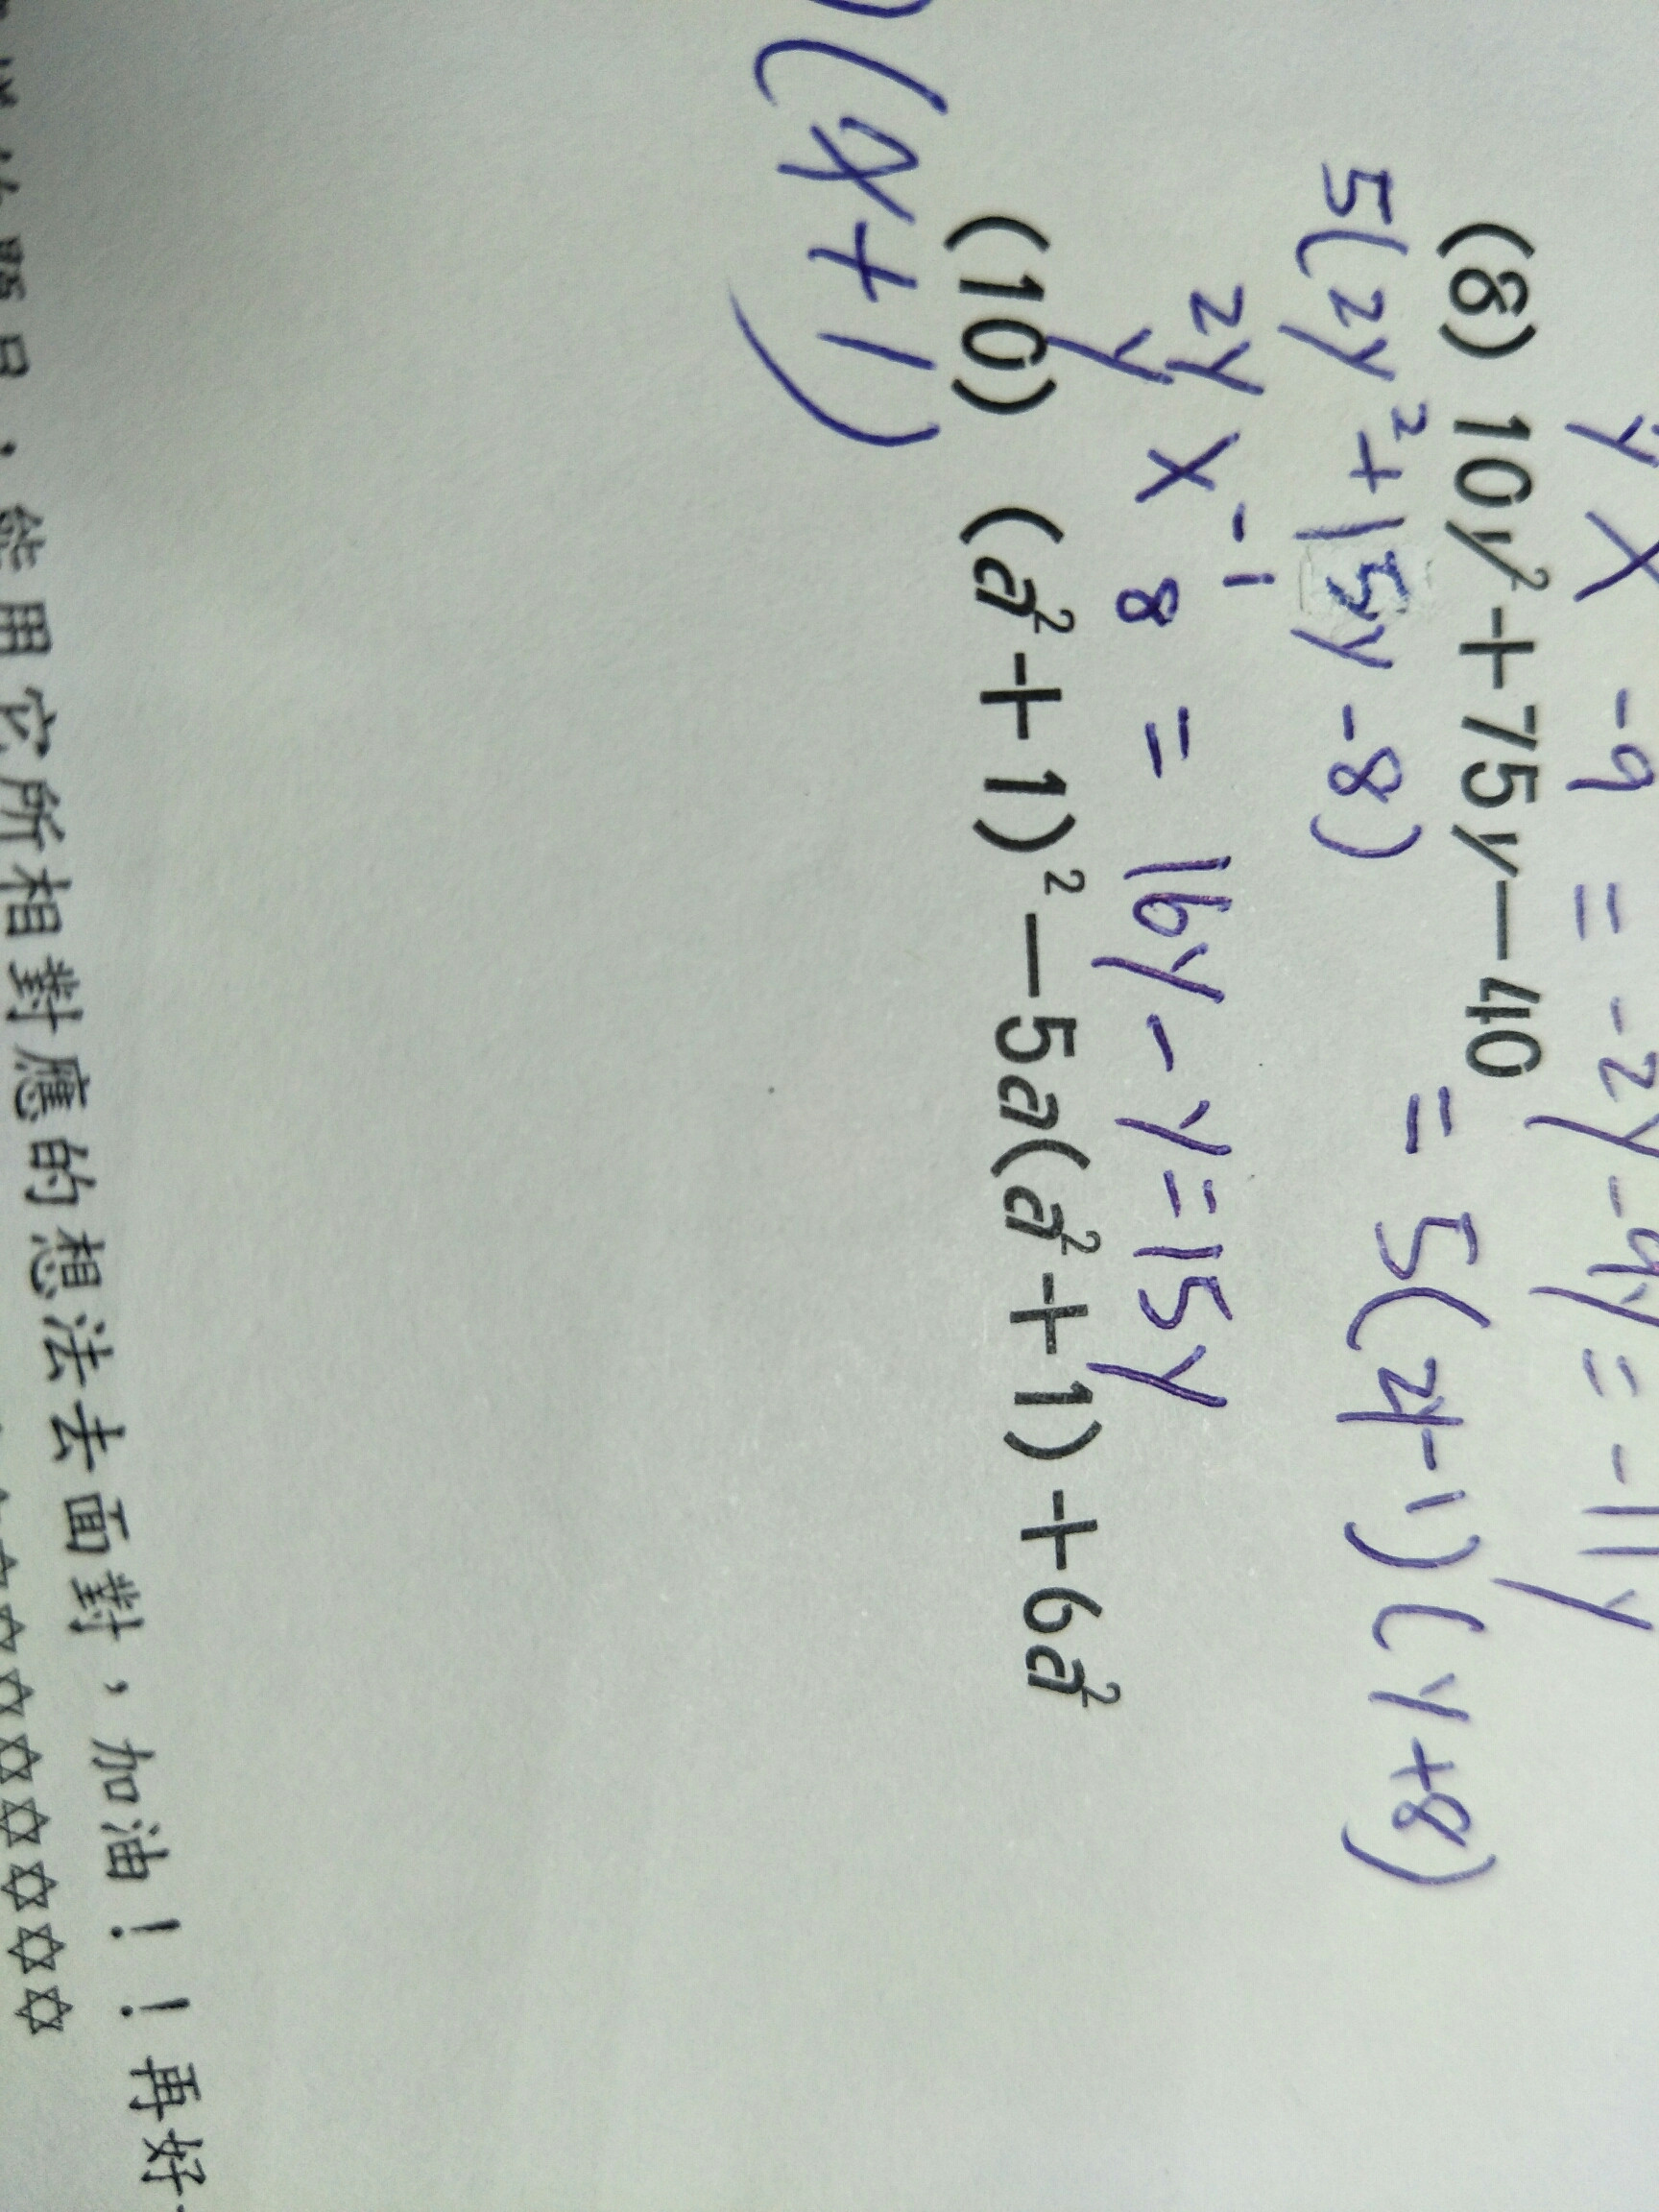 y X -9 = -2y-9y = -11y
(8) 10y²+75y-40
5(2y²+15y-8) = 5(2y-1)(y+8)
2y -1
y X 8 = 16y-y=15y
(10) (a²+1)²-5a(a²+1)+6a²
)(x+1)
，能用它所相對應的想法去面對，加油！！再好
☆☆☆☆☆☆☆